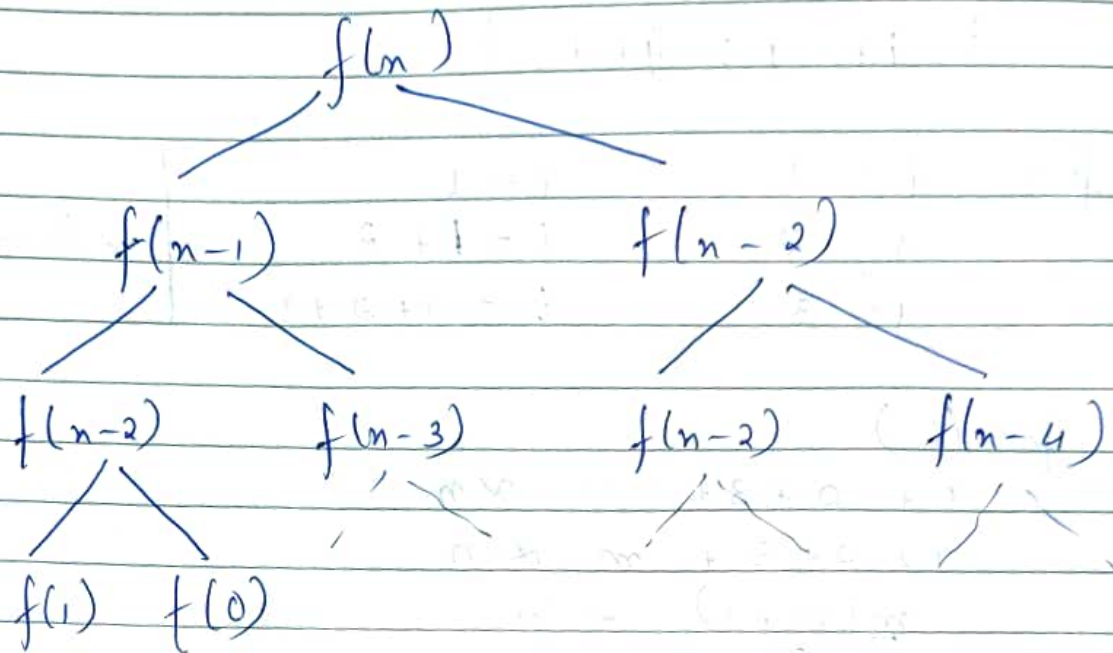 f(n)
f(n-1) f(n-2)
f(n-2) f(n-3) f(n-2) f(n-4)
f(1) f(0)